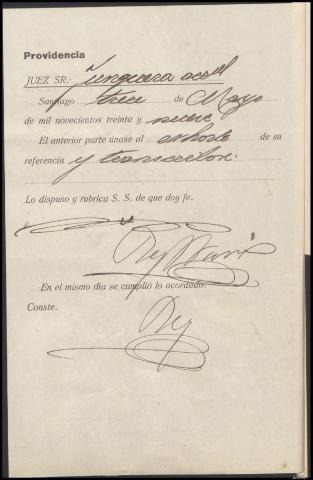 Providencia
JUEZ SR. Junquera accal
Santiago trece de Mayo
de mil novecientos treinta y nueve
El anterior parte únase al exhorto de su
referencia y
Lo dispuso y rubrica S. S. de que doy fe.
En el mismo día se cumplió lo acordado.
Conste. Rey